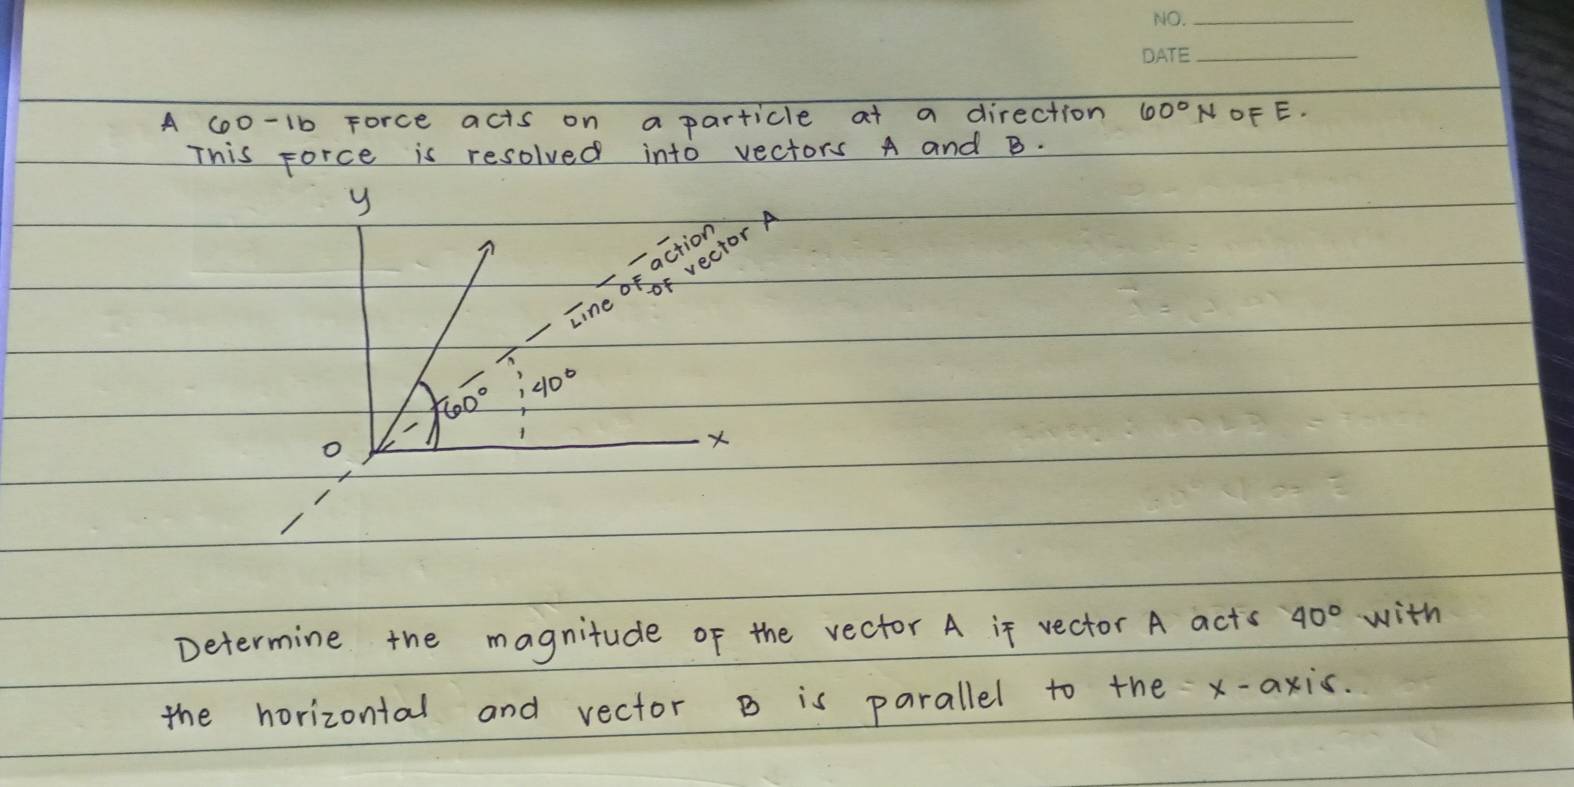 NO.
DATE
A 60-lb Force acts on a particle at a direction 60° N OF E.
This Force is resolved into vectors A and B.
y
Line of action
of vector A
60°
40°
O
x
Determine the magnitude of the vector A if vector A acts 40° with
the horizontal and vector B is parallel to the x-axis.